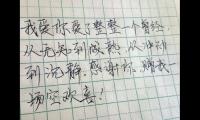 我爱你爱了整整一个曾经
从无知到成熟,从冲动
到冷静,感谢你,赠我一
场空欢喜!